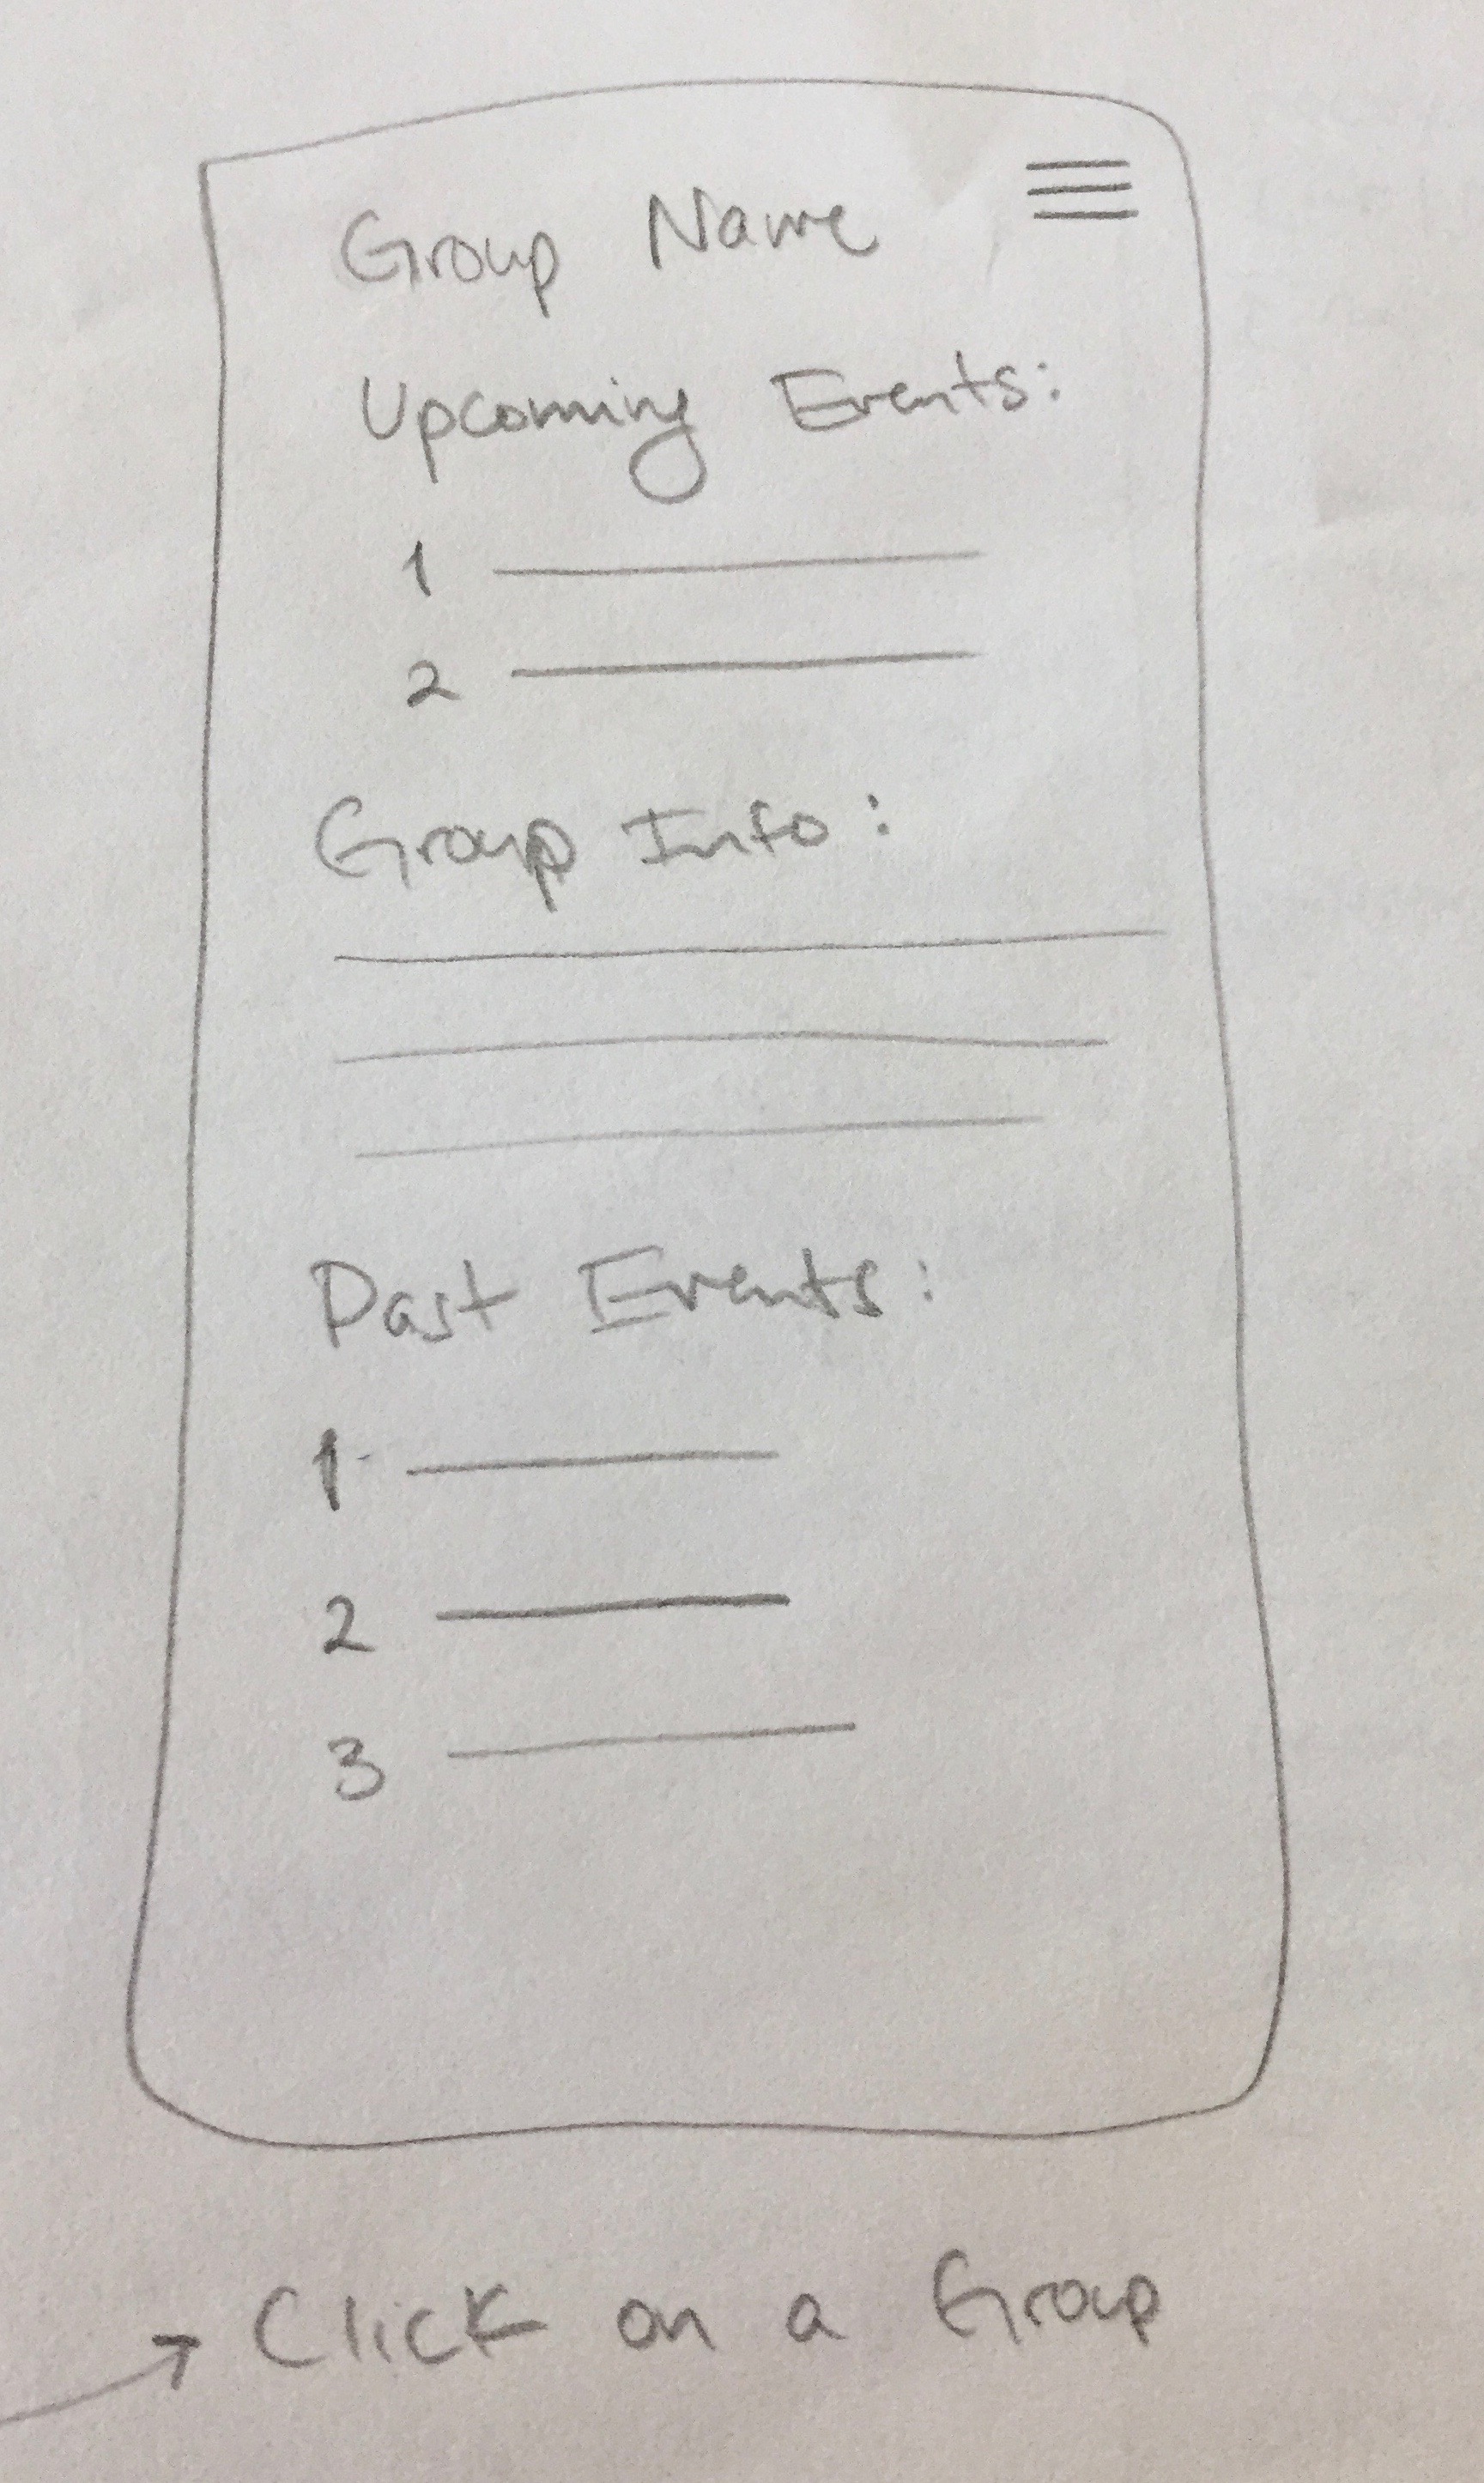 Group Name
Upcoming Events:
1
2
Group Info:
Past Events:
1
2
3
Click on a Group